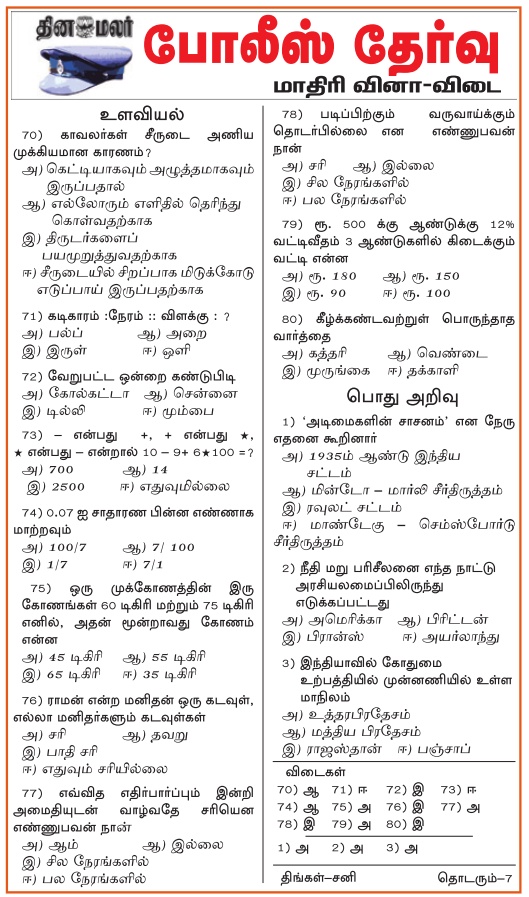 தினமலர்
போலீஸ் தேர்வு
மாதிரி வினா-விடை
உளவியல்
70) காவலர்கள் சீருடை அணிய
முக்கியமான காரணம்?
அ) கெட்டியாகவும் அழுத்தமாகவும்
இருப்பதால்
ஆ) எல்லோரும் எளிதில் தெரிந்து
கொள்வதற்காக
இ) திருடர்களைப்
பயமுறுத்துவதற்காக
ஈ) சீருடையில் சிறப்பாக மிடுக்கோடு
எடுப்பாய் இருப்பதற்காக
71) கடிகாரம் :நேரம் :: விளக்கு : ?
அ) பல்ப் ஆ) அறை
இ) இருள் ஈ) ஒளி
72) வேறுபட்ட ஒன்றை கண்டுபிடி
அ) கோல்கட்டா ஆ) சென்னை
இ) டில்லி ஈ) மும்பை
73) – என்பது +, + என்பது ★,
★ என்பது – என்றால் 10 – 9+ 6★100 =?
அ) 700 ஆ) 14
இ) 2500 ஈ) எதுவுமில்லை
74) 0.07 ஐ சாதாரண பின்ன எண்ணாக
மாற்றவும்
அ) 100/7 ஆ) 7/ 100
இ) 1/7 ஈ) 7/1
75) ஒரு முக்கோணத்தின் இரு
கோணங்கள் 60 டிகிரி மற்றும் 75 டிகிரி
எனில், அதன் மூன்றாவது கோணம்
என்ன
அ) 45 டிகிரி ஆ) 55 டிகிரி
இ) 65 டிகிரி ஈ) 35 டிகிரி
76) ராமன் என்ற மனிதன் ஒரு கடவுள்,
எல்லா மனிதர்களும் கடவுள்கள்
அ) சரி ஆ) தவறு
இ) பாதி சரி
ஈ) எதுவும் சரியில்லை
77) எவ்வித எதிர்பார்ப்பும் இன்றி
அமைதியுடன் வாழ்வதே சரியென
எண்ணுபவன் நான்
அ) ஆம் ஆ) இல்லை
இ) சில நேரங்களில்
ஈ) பல நேரங்களில்
78) படிப்பிற்கும் வருவாய்க்கும்
தொடர்பில்லை என எண்ணுபவன்
நான்
அ) சரி ஆ) இல்லை
இ) சில நேரங்களில்
ஈ) பல நேரங்களில்
79) ரூ. 500 க்கு ஆண்டுக்கு 12%
வட்டிவீதம் 3 ஆண்டுகளில் கிடைக்கும்
வட்டி என்ன
அ) ரூ. 180 ஆ) ரூ. 150
இ) ரூ. 90 ஈ) ரூ. 100
80) கீழ்க்கண்டவற்றுள் பொருந்தாத
வார்த்தை
அ) கத்தரி ஆ) வெண்டை
இ) முருங்கை ஈ) தக்காளி
பொது அறிவு
1) ‘அடிமைகளின் சாசனம்’ என நேரு
எதனை கூறினார்
அ) 1935ம் ஆண்டு இந்திய
சட்டம்
ஆ) மின்டோ – மார்லி சீர்திருத்தம்
இ) ரவுலட் சட்டம்
ஈ) மாண்டேகு – செம்ஸ்போர்டு
சீர்திருத்தம்
2) நீதி மறு பரிசீலனை எந்த நாட்டு
அரசியலமைப்பிலிருந்து
எடுக்கப்பட்டது
அ) அமெரிக்கா ஆ) பிரிட்டன்
இ) பிரான்ஸ் ஈ) அயர்லாந்து
3) இந்தியாவில் கோதுமை
உற்பத்தியில் முன்னணியில் உள்ள
மாநிலம்
அ) உத்தரபிரதேசம்
ஆ) மத்திய பிரதேசம்
இ) ராஜஸ்தான் ஈ) பஞ்சாப்
விடைகள்
70) ஆ 71) ஈ 72) இ 73) ஈ
74) ஆ 75) அ 76) இ 77) அ
78) இ 79) அ 80) இ
1) அ 2) அ 3) அ
திங்கள்–சனி தொடரும்–7